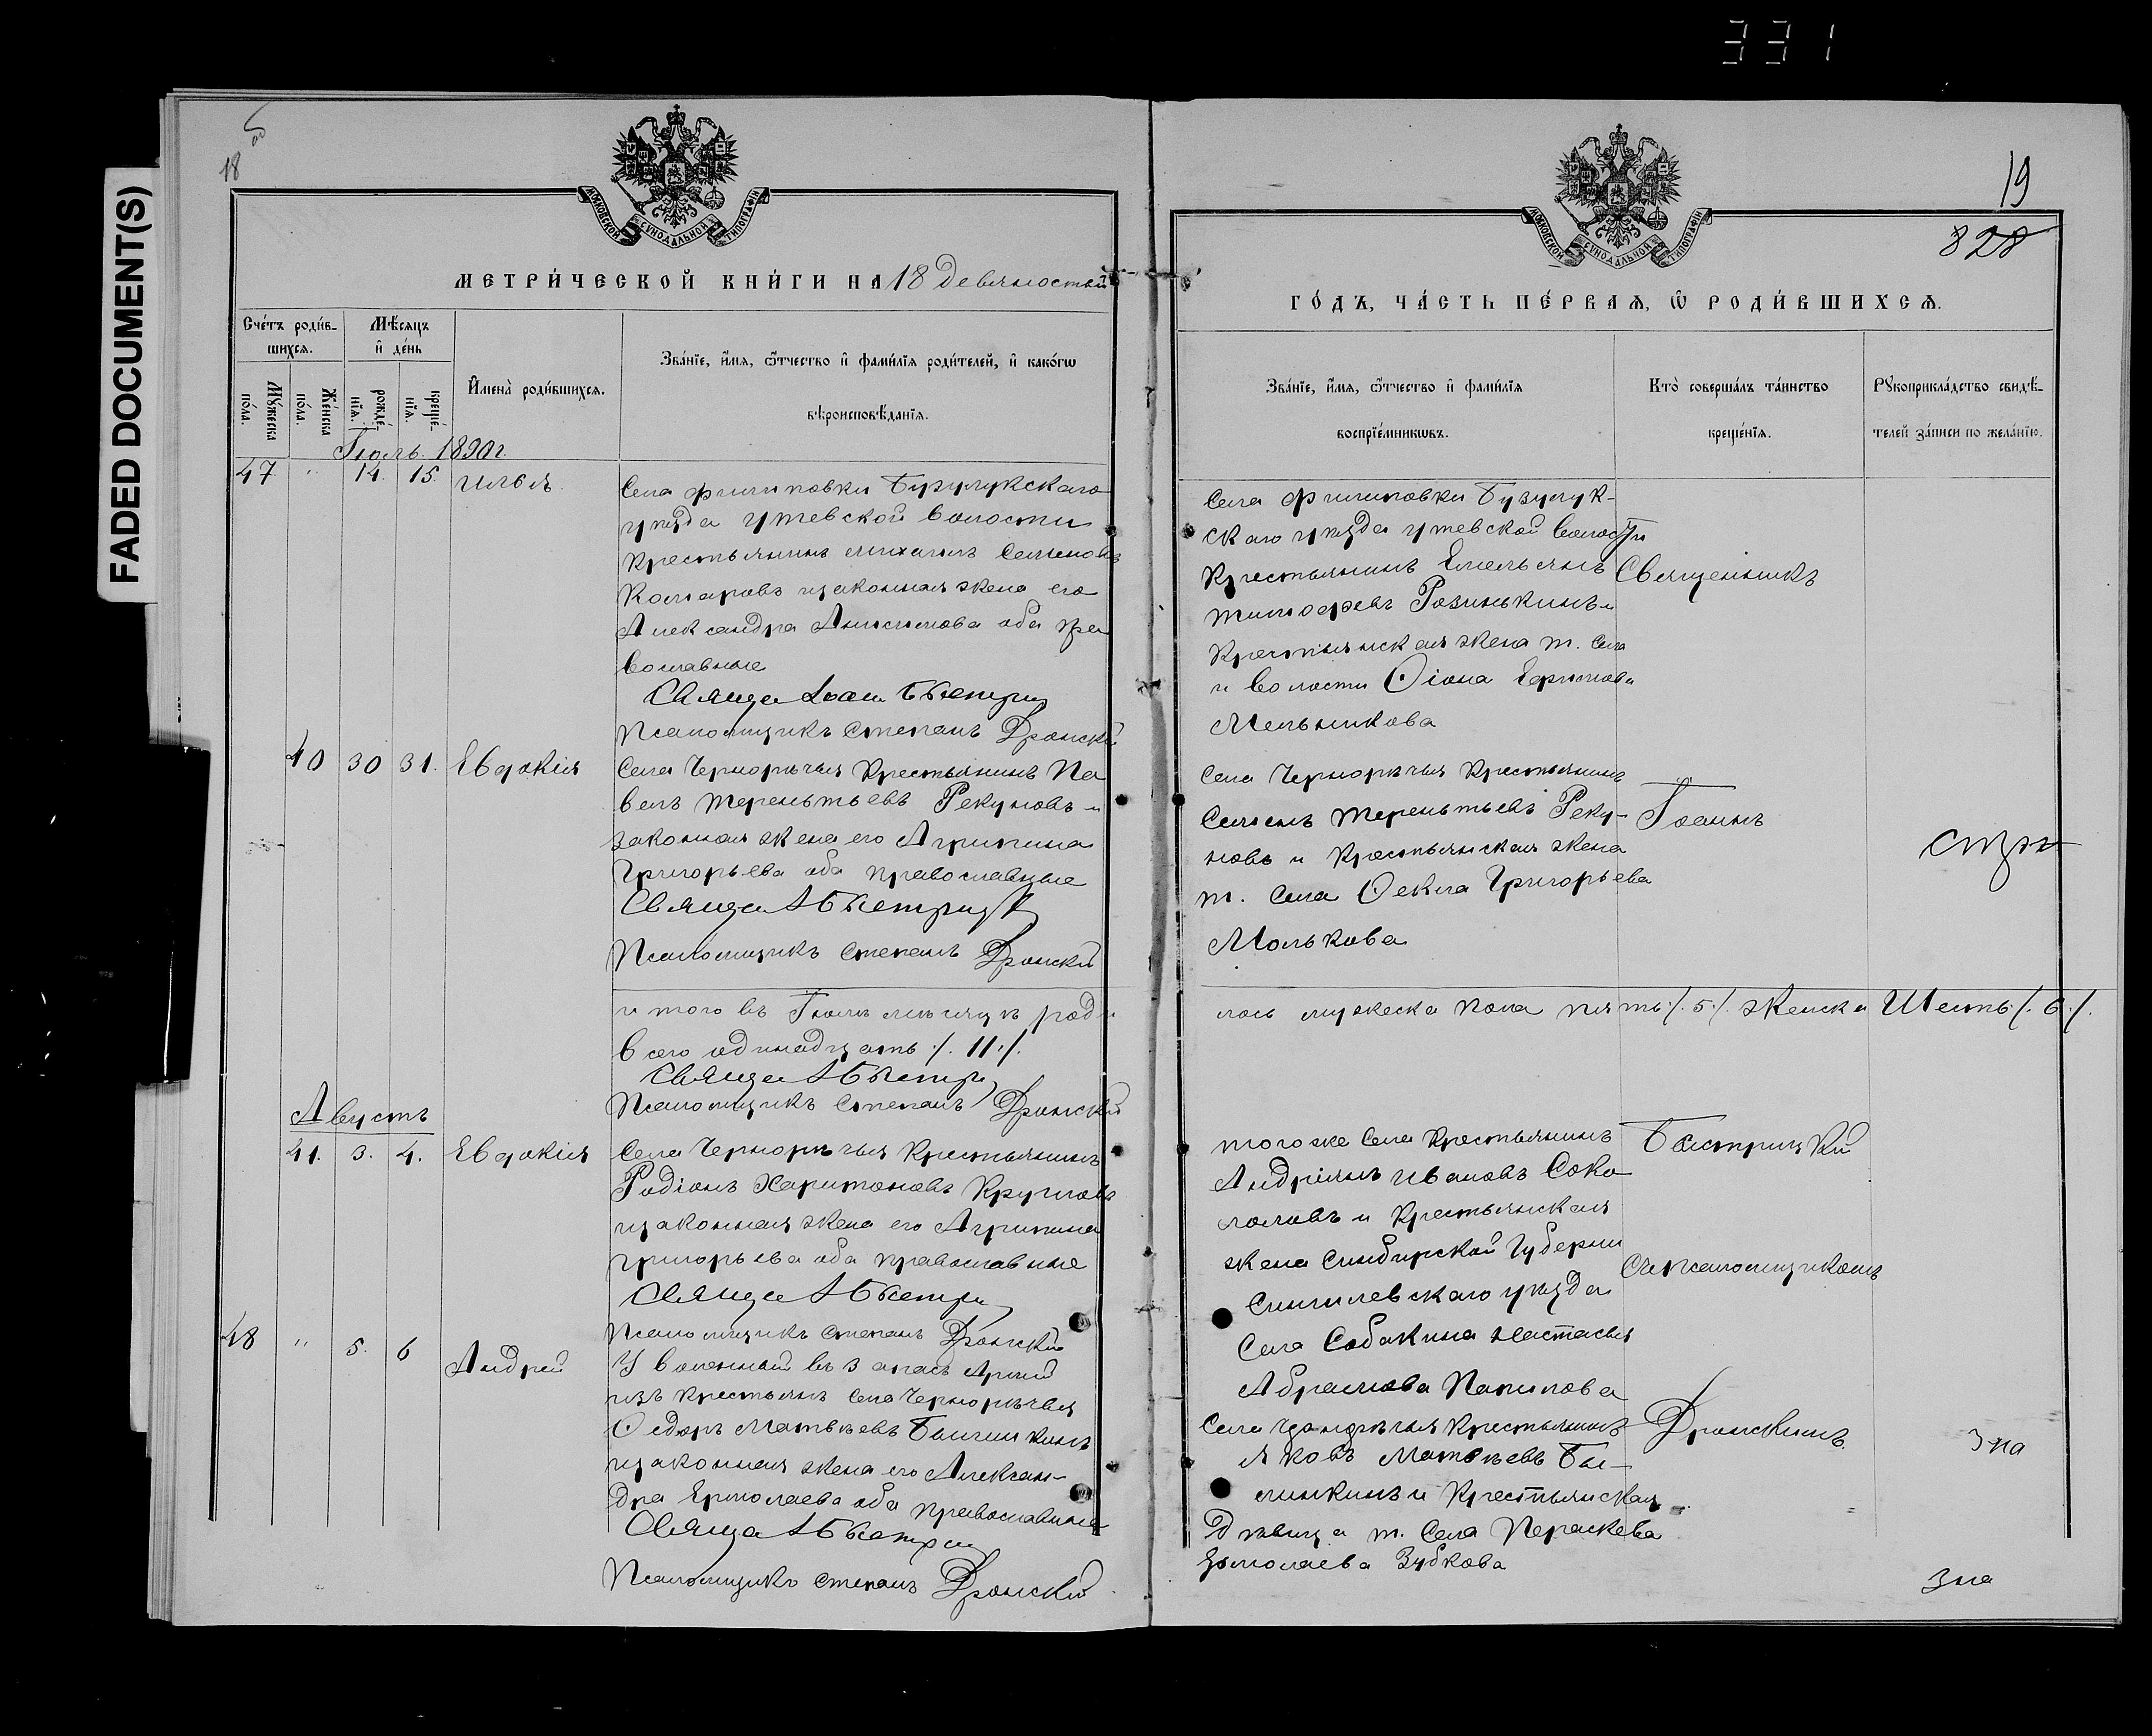 331
FADED DOCUMENT(S)
18 об
МОСКОВСКОЙ СѴНОДАЛЬНОЙ ТИПОГРАФІИ
МЕТРИ́ЧЕСКОЙ КНИ́ГИ НА 18 девяностый
Сче́тъ роди́в-
шихсѧ.
Мѣ́сѧцъ
и҆ де́нь
Мꙋ́жеска
по́ла.
Же́нска
по́ла.
рожде́-
нїѧ.
креще́-
нїѧ.
И҆мена̀ роди́вшихсѧ.
Зва́нїе, и҆́мѧ, ѻ҆́тчество и҆ фамі́лїѧ роди́телей, и҆ како́гѡ
вѣроисповѣ́данїѧ.
Іюль 1890 г.
47 " 14. 15. Илья
Села Филиповки Бузулукскаго
уѣзда Утевской волости
крестьянинъ Михаилъ Семеновъ
Комаровъ и законная жена его
Александра Анисимова оба пра
вославные
Священ Іоан Быстриц
Псаломщикъ Степанъ Дронскій
40 30 31. Евдокія
Села Черноречья крестьянинъ Па
велъ Терентьевъ Рекуновъ и
законная жена его Агрипина
Григорьева оба православные
Священ І Быстрицк
Псаломщикъ Степанъ Дронскій
итого въ Іюлѣ мѣсяцѣ роди
всего одинадцать /. 11 ./.
Священ І Быстри
Псаломщикъ Степанъ Дронскій
Августъ
41. 3. 4. Евдокія
Села Черноречья крестьянинъ
Родіонъ Харитоновъ Кругловъ
и законная жена его Агрипина
Григорьева оба православные
Священ І Быстри
Псаломщикъ Степанъ Дронскій
48 " 5. 6 Андрей
Уволенный въ запасъ Арміи
изъ крестьянъ села Черноречья
Ѳедоръ Матвѣевъ
и законная жена его Алексан-
дра Ермолаева оба православные
Священ І Быстриц
Псаломщикъ Степанъ Дронскій
19
828
МОСКОВСКОЙ СѴНОДАЛЬНОЙ ТИПОГРАФІИ
ГО́ДЪ, ЧА́СТЬ ПЕ́РВАѦ, Ѡ҆ РОДИ́ВШИХСѦ.
Зва́нїе, и҆́мѧ, ѻ҆́тчество и҆ фамі́лїѧ
воспрїе́мникѡвъ.
Кто̀ соверша́лъ та́инство
креще́нїѧ.
Рꙋкоприкла́дство свидѣ́-
телей за́писи по жела́нїю.
Села Филиповки Бузулук-
скаго уѣзда Утевской волости
крестьянинъ Емельянъ
Тимофевъ Розинькинъ и
крестьянская жена т. села
и волости Ѳіона Ефимова
Мельникова
Священникъ
Села Черноречья крестьянинъ
Семенъ Терентьевъ Реку-
новъ и крестьянская жена
т. села Ѳекла Григорьева
Молькова
Іоаннъ
лось мужеска пола пять /. 5 /. женска Шесть /. 6 ./.
того же села крестьянинъ
Андріянъ Ивановъ Соко
ломовъ и крестьянская
жена Симбирской Губерни
Сингилевскаго уѣзда
села Собакина Настасья
Абрамова Папилова
Быстрицкій
съ псаломщикомъ
Дронскимъ
Села Чернорѣчья крестьянинъ
Яковъ Матвѣевъ Бы-
линкинъ и крестьянская
дѣвица т. села Параскева
Ермолаева Зубкова